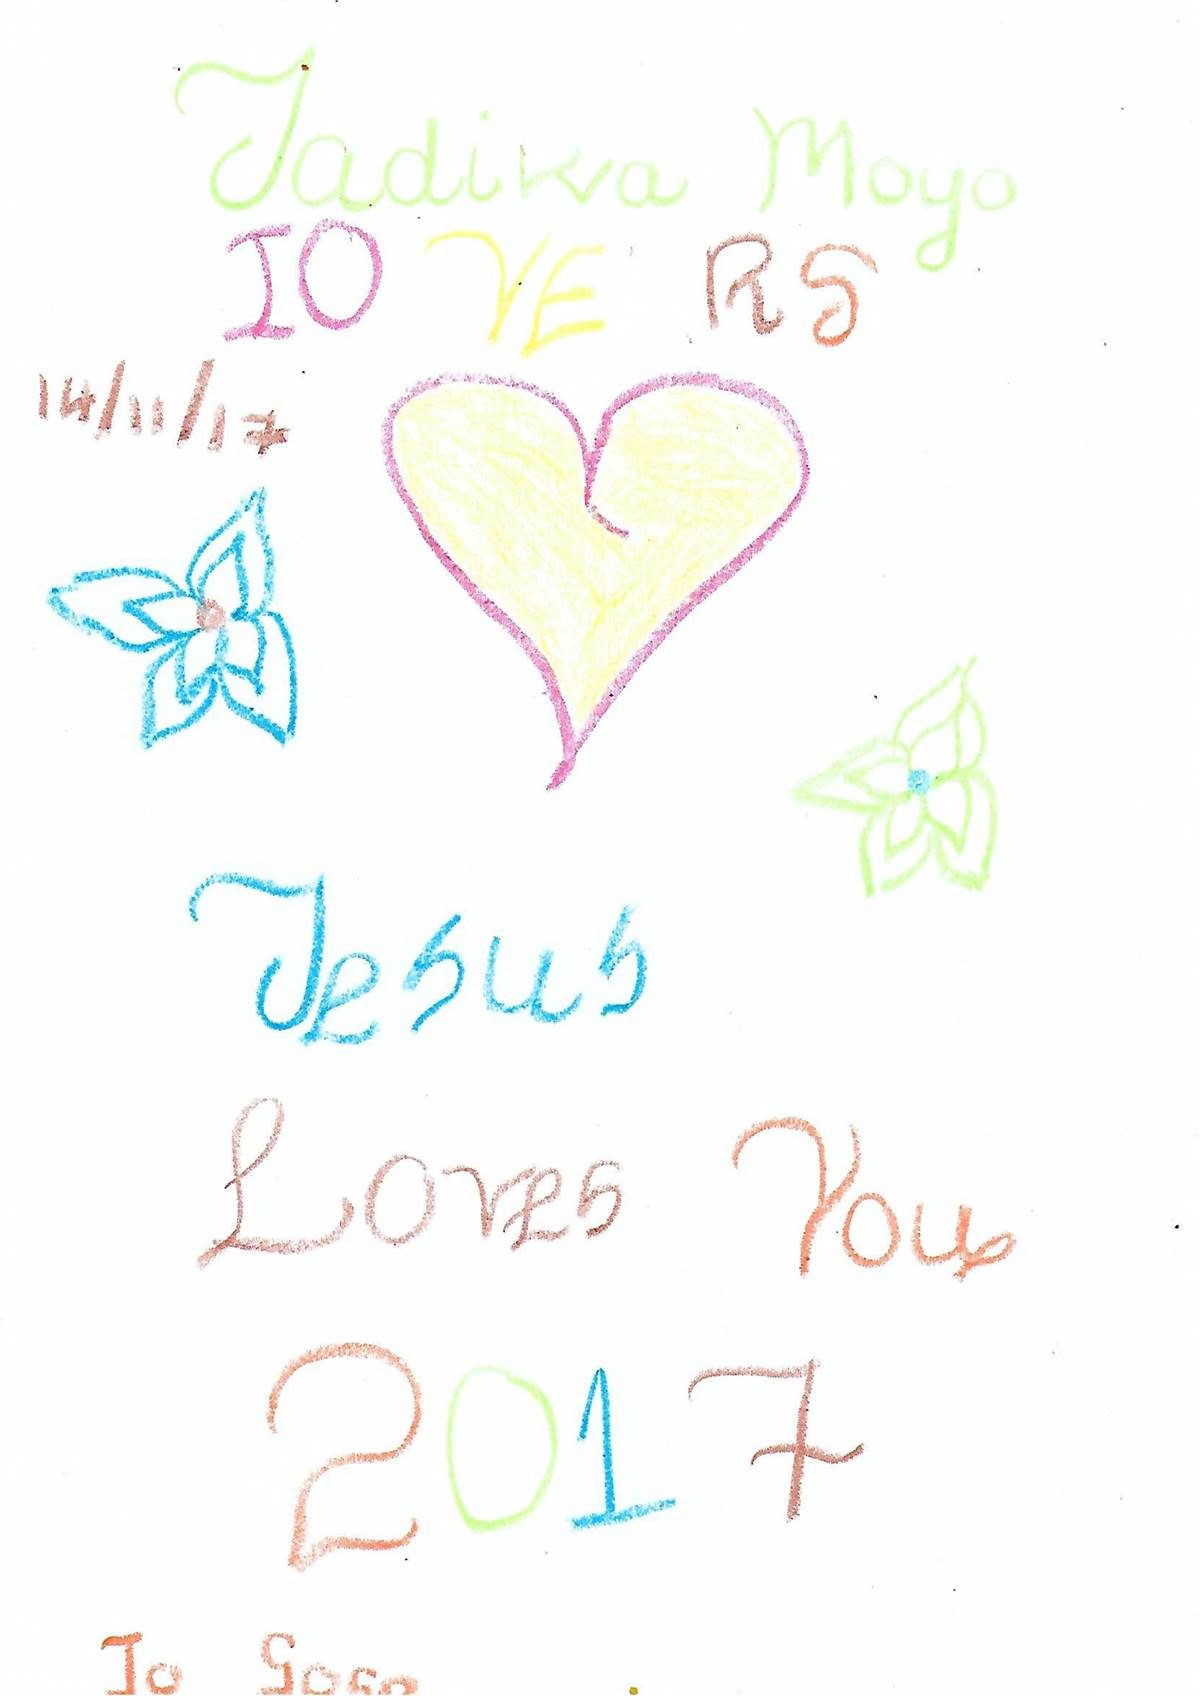 Tadiwa Moyo
IO VE RS
14/11/17
Jesus
Loves You
2017
To Gogo